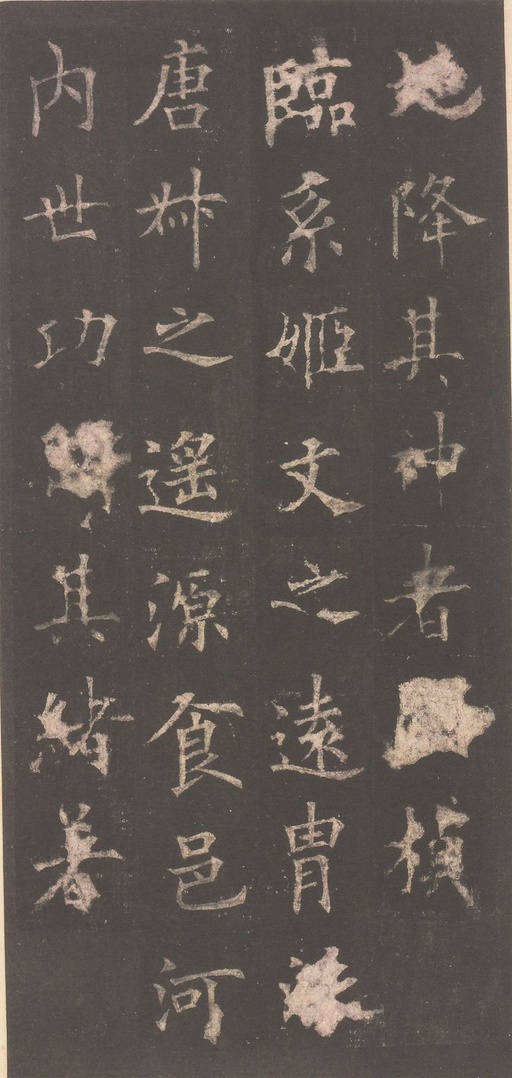 地降其神者楨
臨系姬文之遠胄派
唐叔之遙源食邑河
内世功其緒著